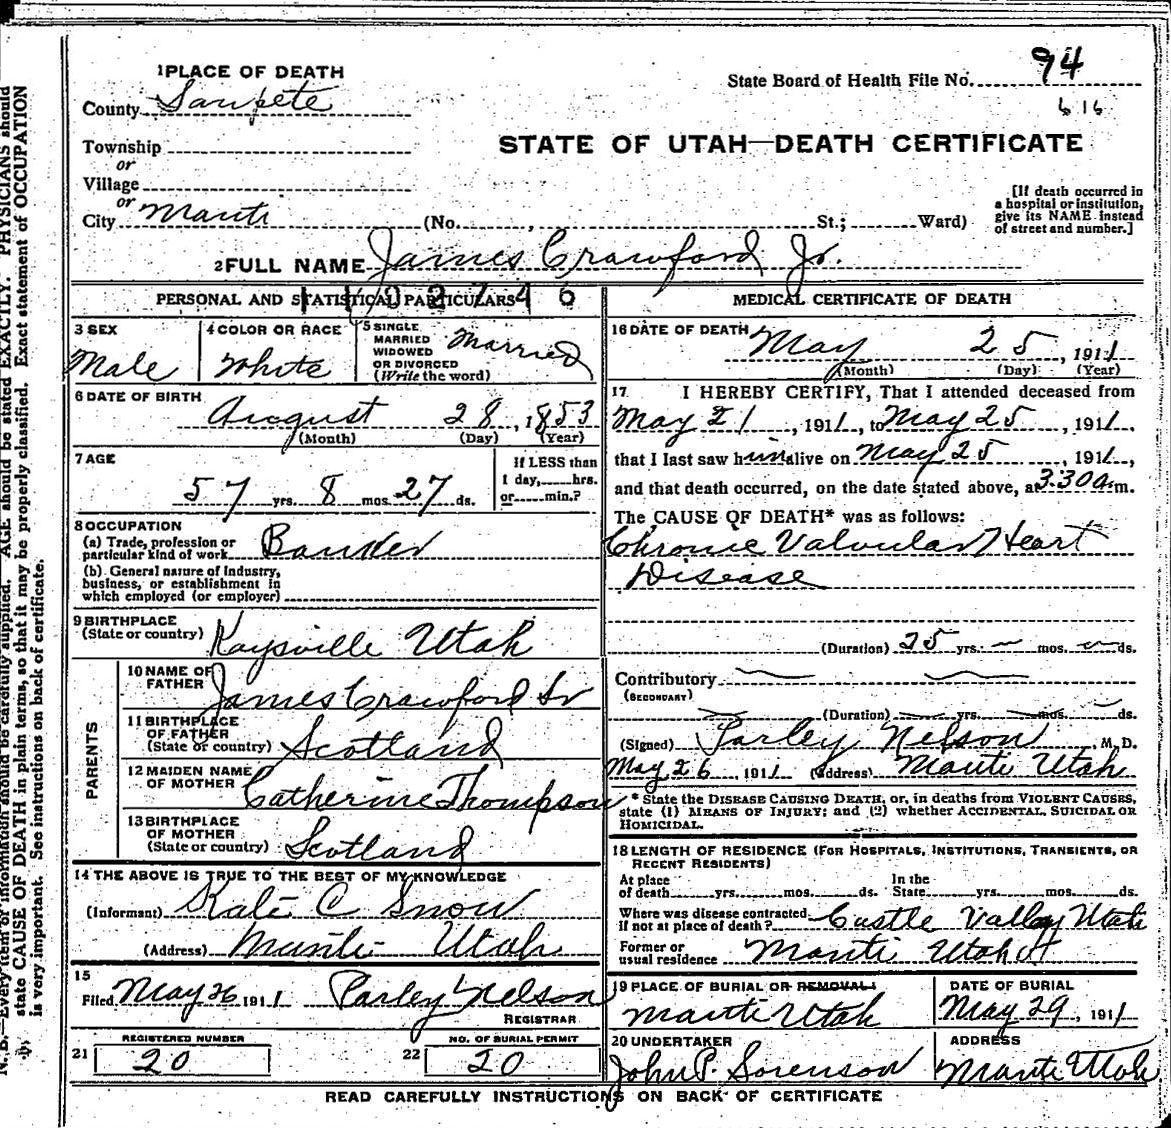 1 PLACE OF DEATH
County Sanpete
Township
or
Village
or
City Manti (No. , St.; Ward)
State Board of Health File No. 94
616
STATE OF UTAH—DEATH CERTIFICATE
[If death occurred in
a hospital or institution,
give its NAME instead
of street and number.]
2 FULL NAME James Crawford Jr.
PERSONAL AND STATISTICAL PARTICULARS
3 SEX
Male
4 COLOR OR RACE
White
5 SINGLE
MARRIED
WIDOWED
OR DIVORCED
(Write the word)
Married
6 DATE OF BIRTH
August 28, 1853
(Month) (Day) (Year)
7 AGE
57 yrs. 8 mos. 27 ds.
If LESS than
1 day, hrs.
or min.?
8 OCCUPATION
(a) Trade, profession or
particular kind of work Banker
(b) General nature of industry,
business, or establishment in
which employed (or employer)
9 BIRTHPLACE
(State or country) Kaysville Utah
PARENTS
10 NAME OF
FATHER James Crawford Sr
11 BIRTHPLACE
OF FATHER
(State or country) Scotland
12 MAIDEN NAME
OF MOTHER Catherine Thompson
13 BIRTHPLACE
OF MOTHER
(State or country) Scotland
14 THE ABOVE IS TRUE TO THE BEST OF MY KNOWLEDGE
(Informant) Kate C Snow
(Address) Manti Utah
15
Filed May 26 1911 Parley Nelson
REGISTRAR
REGISTERED NUMBER
21 20
NO. OF BURIAL PERMIT
22 20
MEDICAL CERTIFICATE OF DEATH
16 DATE OF DEATH
May 25, 1911
(Month) (Day) (Year)
17 I HEREBY CERTIFY, That I attended deceased from
May 21, 1911, to May 25, 1911,
that I last saw him alive on May 25, 1911,
and that death occurred, on the date stated above, at 3:30 a.m.
The CAUSE OF DEATH* was as follows:
Chronic Valvular Heart
Disease
(Duration) 25 yrs. — mos. — ds.
Contributory
(SECONDARY)
(Duration) yrs. mos. ds.
(Signed) Parley Nelson, M. D.
May 26, 1911 (Address) Manti Utah
* State the DISEASE CAUSING DEATH, or, in deaths from VIOLENT CAUSES,
state (1) MEANS OF INJURY; and (2) whether ACCIDENTAL, SUICIDAL OR
HOMICIDAL.
18 LENGTH OF RESIDENCE (FOR HOSPITALS, INSTITUTIONS, TRANSIENTS, OR
RECENT RESIDENTS)
At place
of death yrs. mos. ds.
In the
State yrs. mos. ds.
Where was disease contracted
if not at place of death? Castle Valley Utah
Former or
usual residence Manti Utah
19 PLACE OF BURIAL OR REMOVAL
Manti Utah
DATE OF BURIAL
May 29, 1911
20 UNDERTAKER
John P. Sorenson
ADDRESS
Manti Utah
READ CAREFULLY INSTRUCTIONS ON BACK OF CERTIFICATE
N. B.—Every item of information should be carefully supplied. AGE should be stated EXACTLY. PHYSICIANS should
state CAUSE OF DEATH in plain terms, so that it may be properly classified. Exact statement of OCCUPATION
is very important. See instructions on back of certificate.